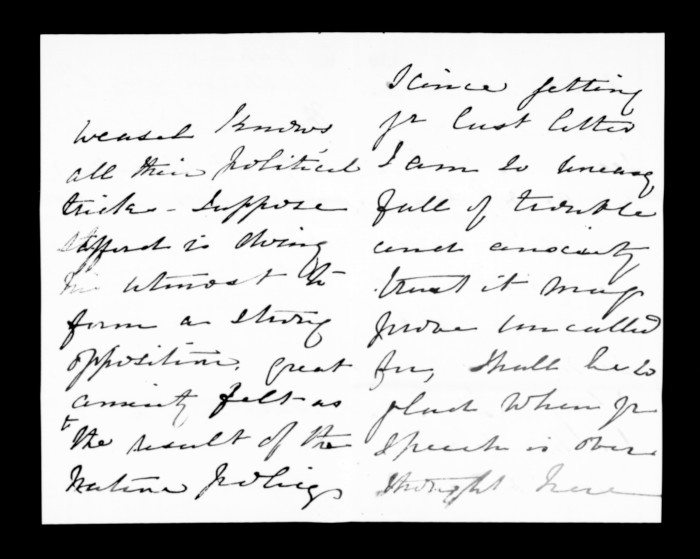 weasel knows
all their political
tricks - Suppose
Stafford is doing
his utmost to
form a strong
opposition, great
anxiety felt as
to the result of the
Native policy
Since getting
yr last letter
I am so uneasy
full of trouble
and anxiety
trust it may
prove uncalled
for, Shall be so
glad when yr
Speech is over
thought here